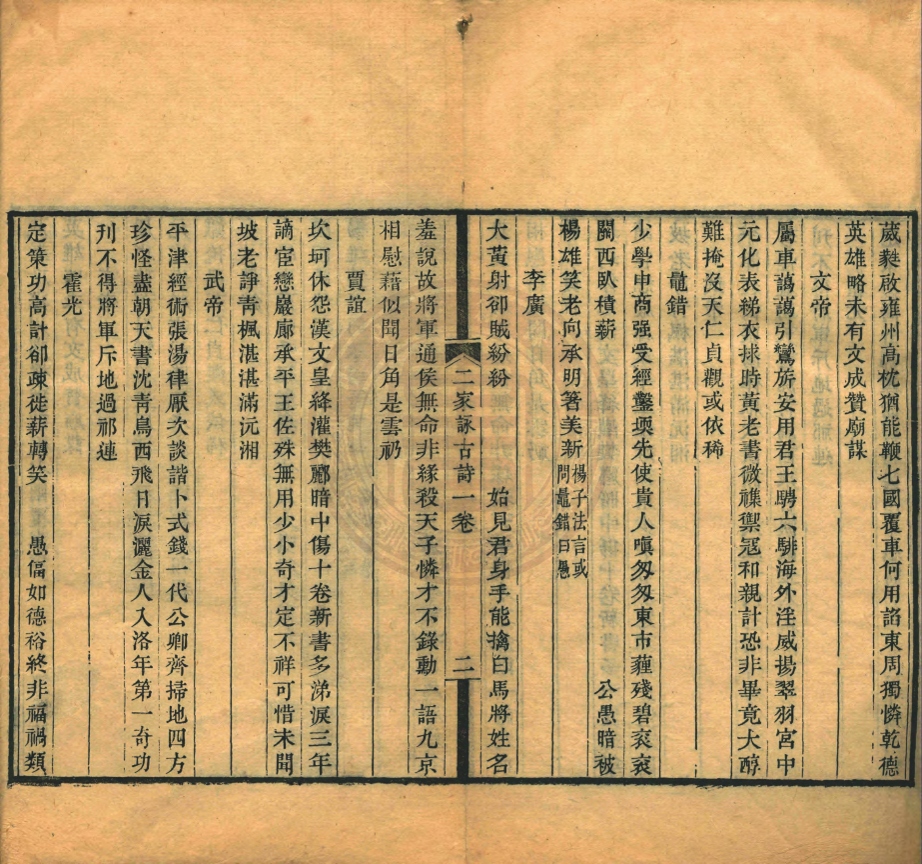 葳蕤啟雍州高枕猶能鞭七國覆車何用諂東周獨憐乾德
英雄略未有文成贊廟謀
文帝
屬車藹藹引鸞旂安用君王騁六騑海外淫威揚翠羽宮中
元化表綈衣捄時黃老書微襍禦冦和親計恐非畢竟大醇
難掩沒天仁貞觀或依稀
鼂錯
少學申商强受經鑿堧先使貴人嗔匆匆東市薶殘碧衮衮
關西臥積薪 公愚暗被
楊雄笑老向承明箸美新楊子法言或
問鼂錯曰愚
李廣
大黃射卻賊紛紛 始見君身手能擒白馬將姓名
羞說故將軍通侯無命非緣殺天子憐才不錄動一語九京
相慰藉似聞日角是雲礽
賈誼
坎坷休怨漢文皇絳灌樊酈暗中傷十卷新書多涕淚三年
謫宦戀巖廊承平王佐殊無用少小奇才定不祥可惜未聞
坡老諍青楓湛湛滿沅湘
武帝
平津經術張湯律厭次談諧卜式錢一代公卿齊掃地四方
珍怪盡朝天書沈青鳥西飛日淚灑金人入洛年第一奇功
刊不得將軍斥地過祁連
霍光
定策功高計卻疎徙薪轉笑 愚偪如德裕終非福禍類
二家詠古詩一卷
二